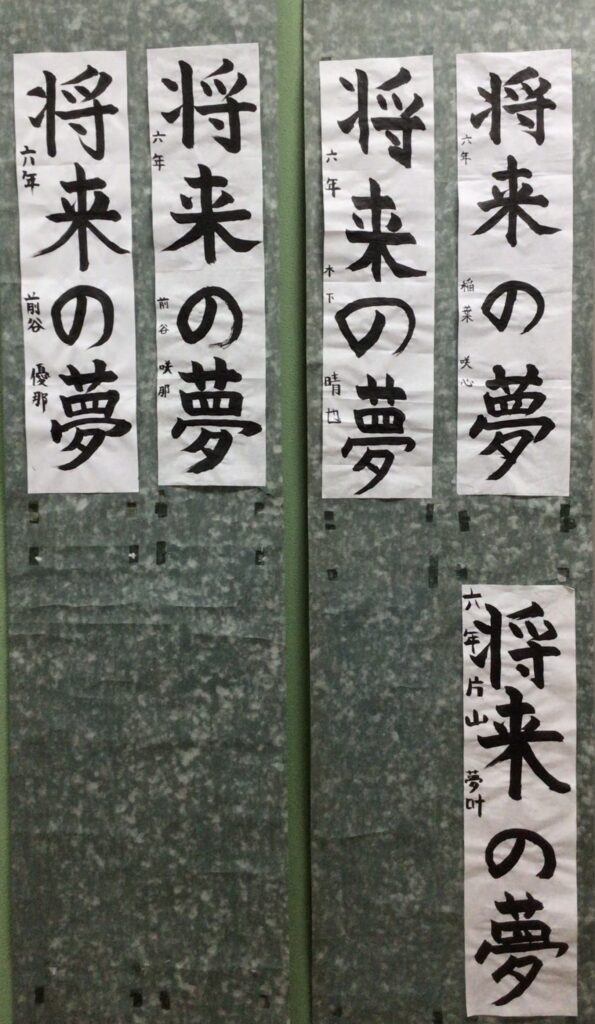 将来の夢
六年 稲葉 咲心
将来の夢
六年 木下 晴也
将来の夢
六年 前谷 咲那
将来の夢
六年 前谷 優那
将来の夢
六年 片山 夢叶